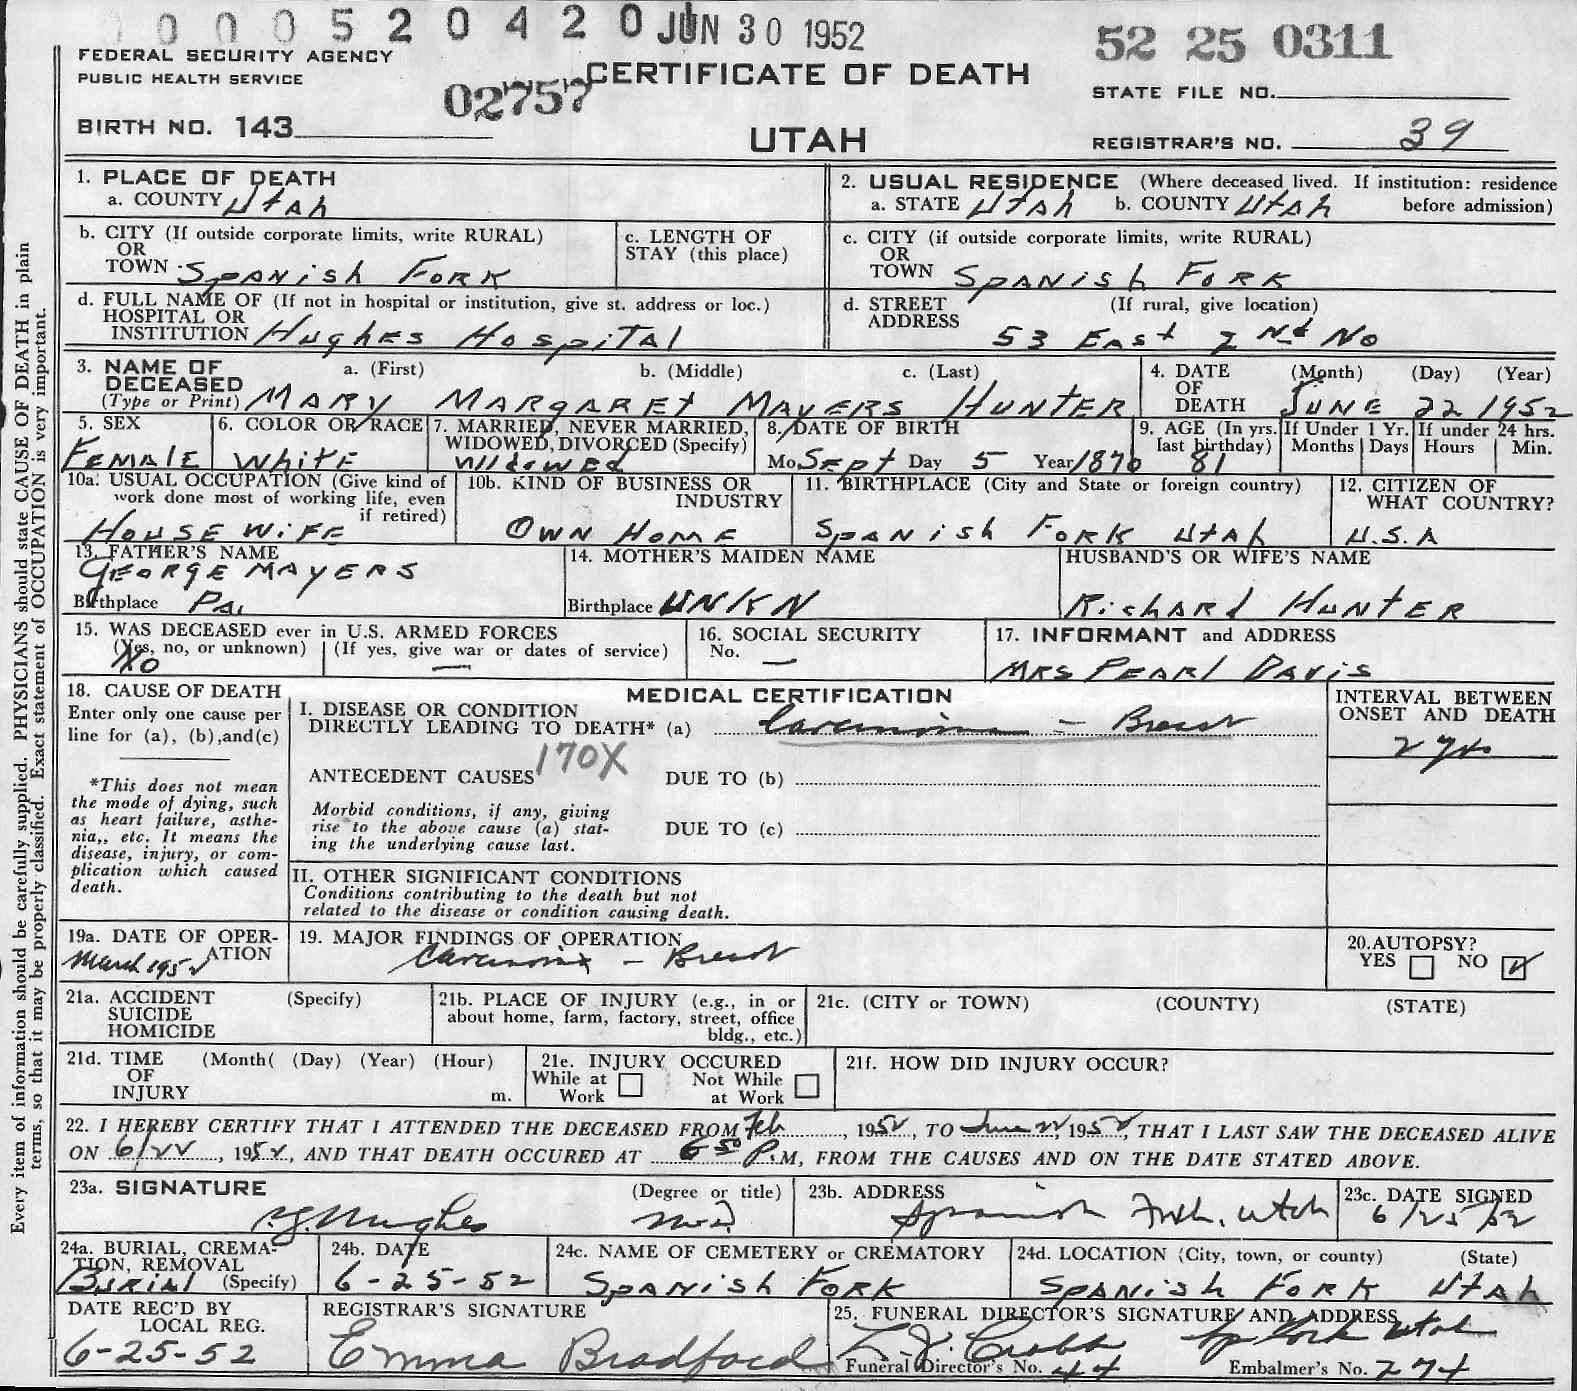 0 0 0 5 2 0 4 2 0 JUN 30 1952
52 25 0311
FEDERAL SECURITY AGENCY
PUBLIC HEALTH SERVICE
02757
CERTIFICATE OF DEATH
STATE FILE NO.
BIRTH NO. 143
UTAH
REGISTRAR'S NO. 39
Every item of information should be carefully supplied. PHYSICIANS should state CAUSE OF DEATH in plain
terms, so that it may be properly classified. Exact statement of OCCUPATION is very important.
1. PLACE OF DEATH
a. COUNTY Utah
2. USUAL RESIDENCE (Where deceased lived. If institution: residence
a. STATE Utah b. COUNTY Utah before admission)
b. CITY (If outside corporate limits, write RURAL)
OR
TOWN Spanish Fork
c. LENGTH OF
STAY (this place)
c. CITY (if outside corporate limits, write RURAL)
OR
TOWN Spanish Fork
d. FULL NAME OF (If not in hospital or institution, give st. address or loc.)
HOSPITAL OR
INSTITUTION Hughes Hospital
d. STREET (If rural, give location)
ADDRESS
53 East 2nd No
3. NAME OF a. (First) b. (Middle) c. (Last)
DECEASED
(Type or Print) MARY MARGARET MAYERS HUNTER
4. DATE (Month) (Day) (Year)
OF
DEATH JUNE 22 1952
5. SEX
FEMALE
6. COLOR OR RACE
White
7. MARRIED, NEVER MARRIED,
WIDOWED, DIVORCED (Specify)
Widowed
8. DATE OF BIRTH
Mo. Sept Day 5 Year 1870
9. AGE (In yrs.
last birthday)
81
If Under 1 Yr.
Months Days
If under 24 hrs.
Hours Min.
10a. USUAL OCCUPATION (Give kind of
work done most of working life, even
if retired)
House Wife
10b. KIND OF BUSINESS OR
INDUSTRY
Own Home
11. BIRTHPLACE (City and State or foreign country)
Spanish Fork Utah
12. CITIZEN OF
WHAT COUNTRY?
U.S.A
13. FATHER'S NAME
GEORGE MAYERS
Birthplace Pa.
14. MOTHER'S MAIDEN NAME
Birthplace UNKN
HUSBAND'S OR WIFE'S NAME
Richard Hunter
15. WAS DECEASED ever in U.S. ARMED FORCES
(Yes, no, or unknown) (If yes, give war or dates of service)
No —
16. SOCIAL SECURITY
No. —
17. INFORMANT and ADDRESS
MRS PEARL DAVIS
18. CAUSE OF DEATH
Enter only one cause per
line for (a), (b), and(c)
*This does not mean
the mode of dying, such
as heart failure, asthe-
nia,, etc. It means the
disease, injury, or com-
plication which caused
death.
MEDICAL CERTIFICATION
I. DISEASE OR CONDITION
DIRECTLY LEADING TO DEATH* (a) Carcinoma - Breast
170X
ANTECEDENT CAUSES DUE TO (b)
Morbid conditions, if any, giving
rise to the above cause (a) stat-
ing the underlying cause last.
DUE TO (c)
II. OTHER SIGNIFICANT CONDITIONS
Conditions contributing to the death but not
related to the disease or condition causing death.
INTERVAL BETWEEN
ONSET AND DEATH
2 yrs
19a. DATE OF OPER-
ATION
March 1952
19. MAJOR FINDINGS OF OPERATION
Carcinoma - Breast
20. AUTOPSY?
YES NO
21a. ACCIDENT (Specify)
SUICIDE
HOMICIDE
21b. PLACE OF INJURY (e.g., in or
about home, farm, factory, street, office
bldg., etc.)
21c. (CITY or TOWN) (COUNTY) (STATE)
21d. TIME (Month( (Day) (Year) (Hour)
OF
INJURY m.
21e. INJURY OCCURED
While at Not While
Work at Work
21f. HOW DID INJURY OCCUR?
22. I HEREBY CERTIFY THAT I ATTENDED THE DECEASED FROM Feb, 1952, TO June 22, 1952, THAT I LAST SAW THE DECEASED ALIVE
ON 6/22, 1952, AND THAT DEATH OCCURED AT 6 50 P.M, FROM THE CAUSES AND ON THE DATE STATED ABOVE.
23a. SIGNATURE (Degree or title)
Hughes M.D.
23b. ADDRESS
Spanish Fork, Utah
23c. DATE SIGNED
6/25/52
24a. BURIAL, CREMA-
TION, REMOVAL
Burial (Specify)
24b. DATE
6-25-52
24c. NAME OF CEMETERY or CREMATORY
Spanish Fork
24d. LOCATION (City, town, or county) (State)
Spanish Fork Utah
DATE REC'D BY
LOCAL REG.
6-25-52
REGISTRAR'S SIGNATURE
Emma Bradford
25. FUNERAL DIRECTOR'S SIGNATURE AND ADDRESS
Sp Fork Utah
Funeral Director's No. 44 Embalmer's No. 274